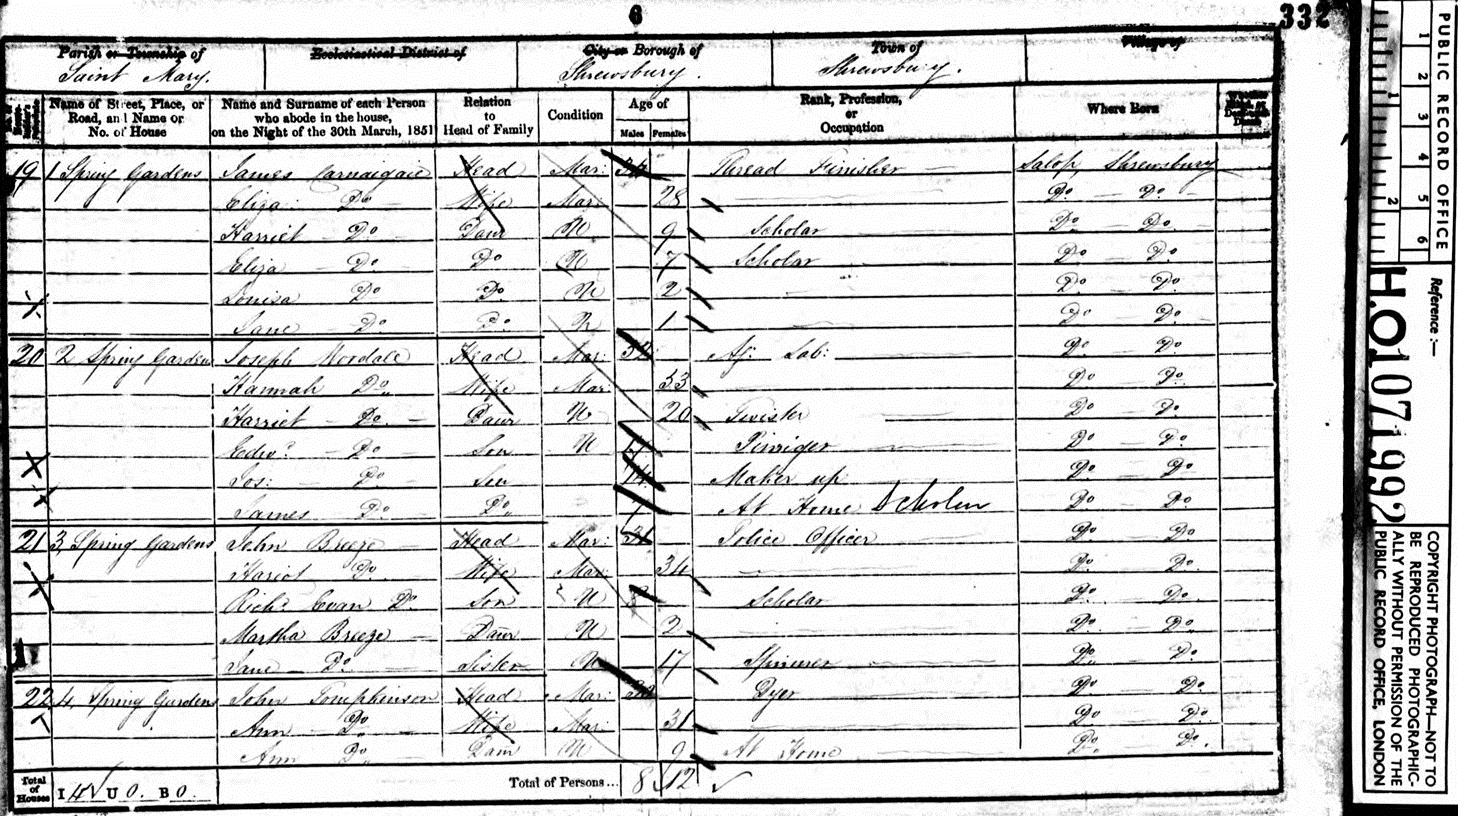 6
332
Parish or Township of
Saint Mary.
Ecclesiastical District of
City or Borough of
Shrewsbury.
Town of
Shrewsbury.
Village of
Name of Street, Place, or Road, and Name or No. of House
Name and Surname of each Person who abode in the house, on the Night of the 30th March, 1851
Relation to Head of Family
Condition
Age of
Males Females
Rank, Profession, or Occupation
Where Born
19 1 Spring Gardens James Head Mar: Thread Finisher Salop, Shrewsbury
Eliza Do Wife Mar: 28 Do Do
Harriet Do Daur U 9 Scholar Do Do
Eliza Do Do U 7 Scholar Do Do
Louisa Do Do U 2 Do Do
Jane Do Do U 1 Do Do
20 2 Spring Gardens Joseph Head Mar: Ag: Lab: Do Do
Hannah Do Wife Mar: 53 Do Do
Harriet Do Daur U 20 Twister Do Do
Edwd. Do Son U Do Do
Jos: Do Son 14 Maker up Do Do
James Do Do At Home Scholar Do Do
21 3, Spring Gardens John Breeze Head Mar: Police Officer Do Do
Hariot Do Wife Mar: 34 Do Do
Richd. Evan Do Son U Scholar Do Do
Martha Breeze Daur U 2 Do Do
Jane Do Sister U 17 Spinner Do Do
22 4, Spring Gardens John Tompkinson Head Mar: Dyer Do Do
Ann Do Wife Mar: 31 Do Do
Ann Do Daur U 9 At Home Do Do
Total of Houses I 4 U 0. B 0. Total of Persons... 8 12
PUBLIC RECORD OFFICE
1 2 3 4 5 6
1 2
Reference:-
H.O 107 1992
COPYRIGHT PHOTOGRAPH—NOT TO
BE REPRODUCED PHOTOGRAPHIC-
ALLY WITHOUT PERMISSION OF THE
PUBLIC RECORD OFFICE, LONDON